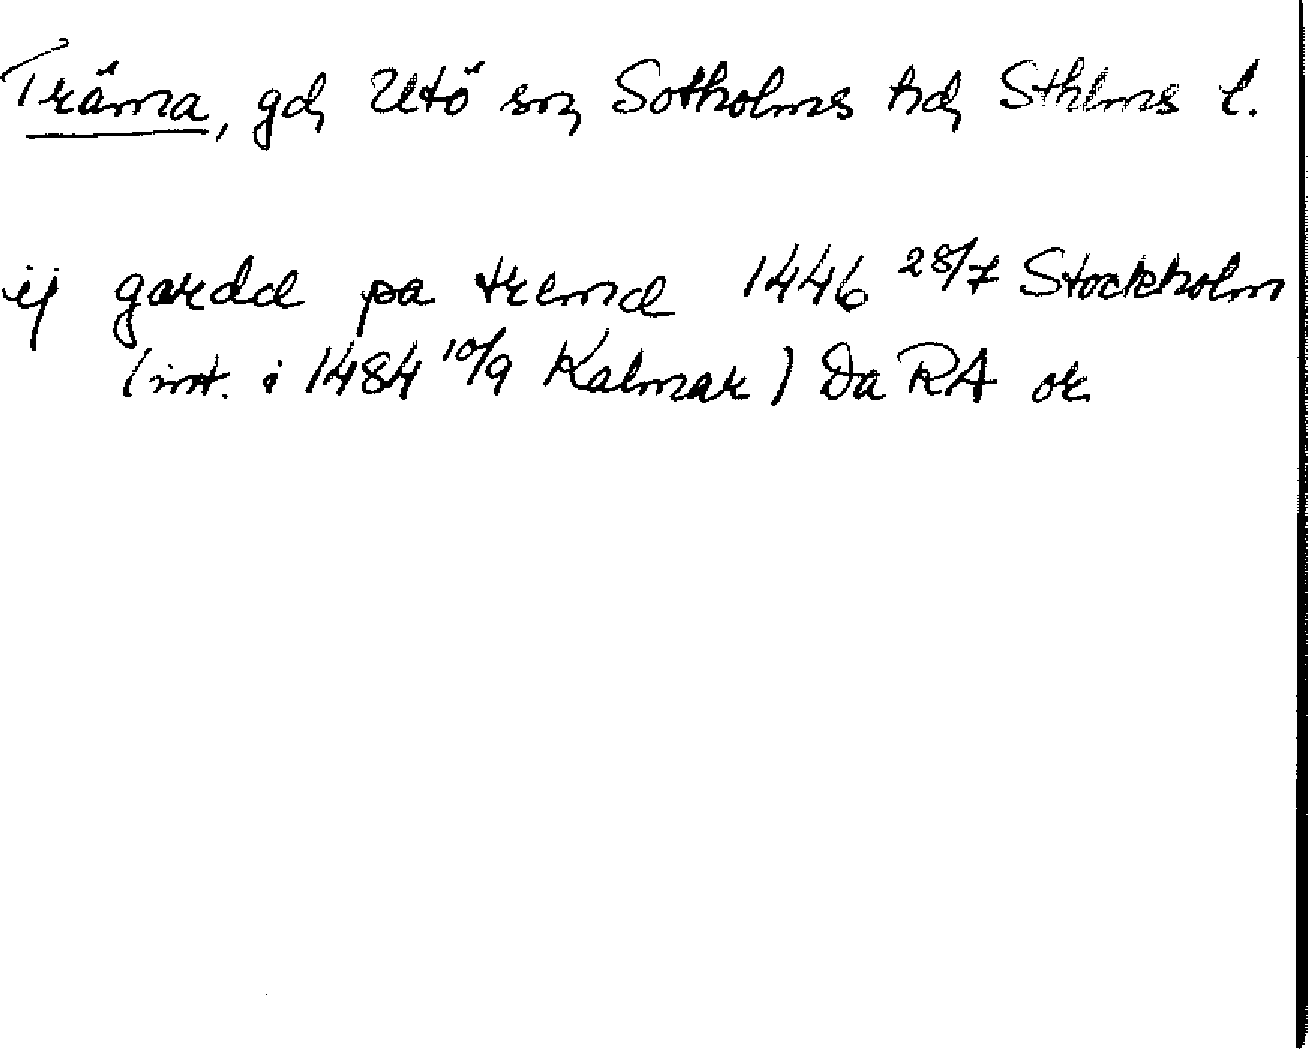 Träma, gd, Utö sn, Sotholms hd, Sthlms l.
ij gardæ pa træmæ 1446 28/7 Stockholm
(int. i 1484 10/9 Kalmar) Da RA or.